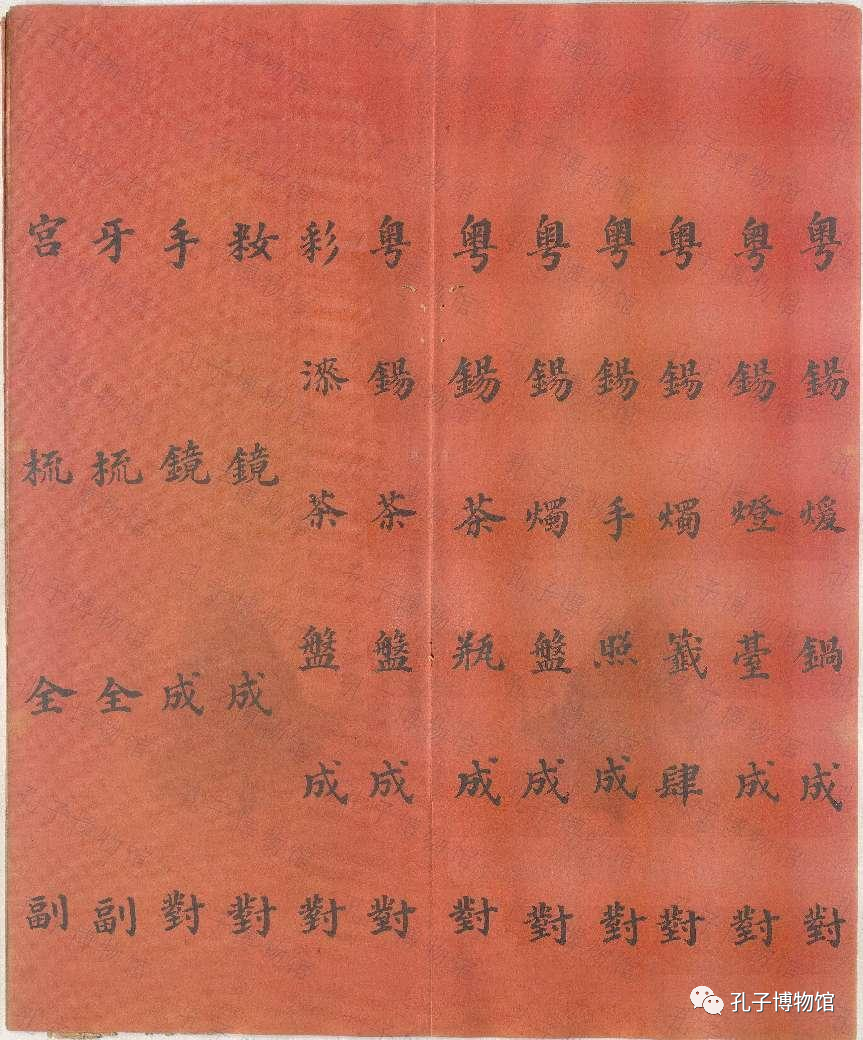 粵錫煖鍋成對
粵錫燈臺成對
粵錫燭籤肆對
粵錫手照成對
粵錫燭盤成對
粵錫茶瓶成對
粵錫茶盤成對
彩漆茶盤成對
妝鏡成對
手鏡成對
牙梳全副
宮梳全副
孔子博物馆